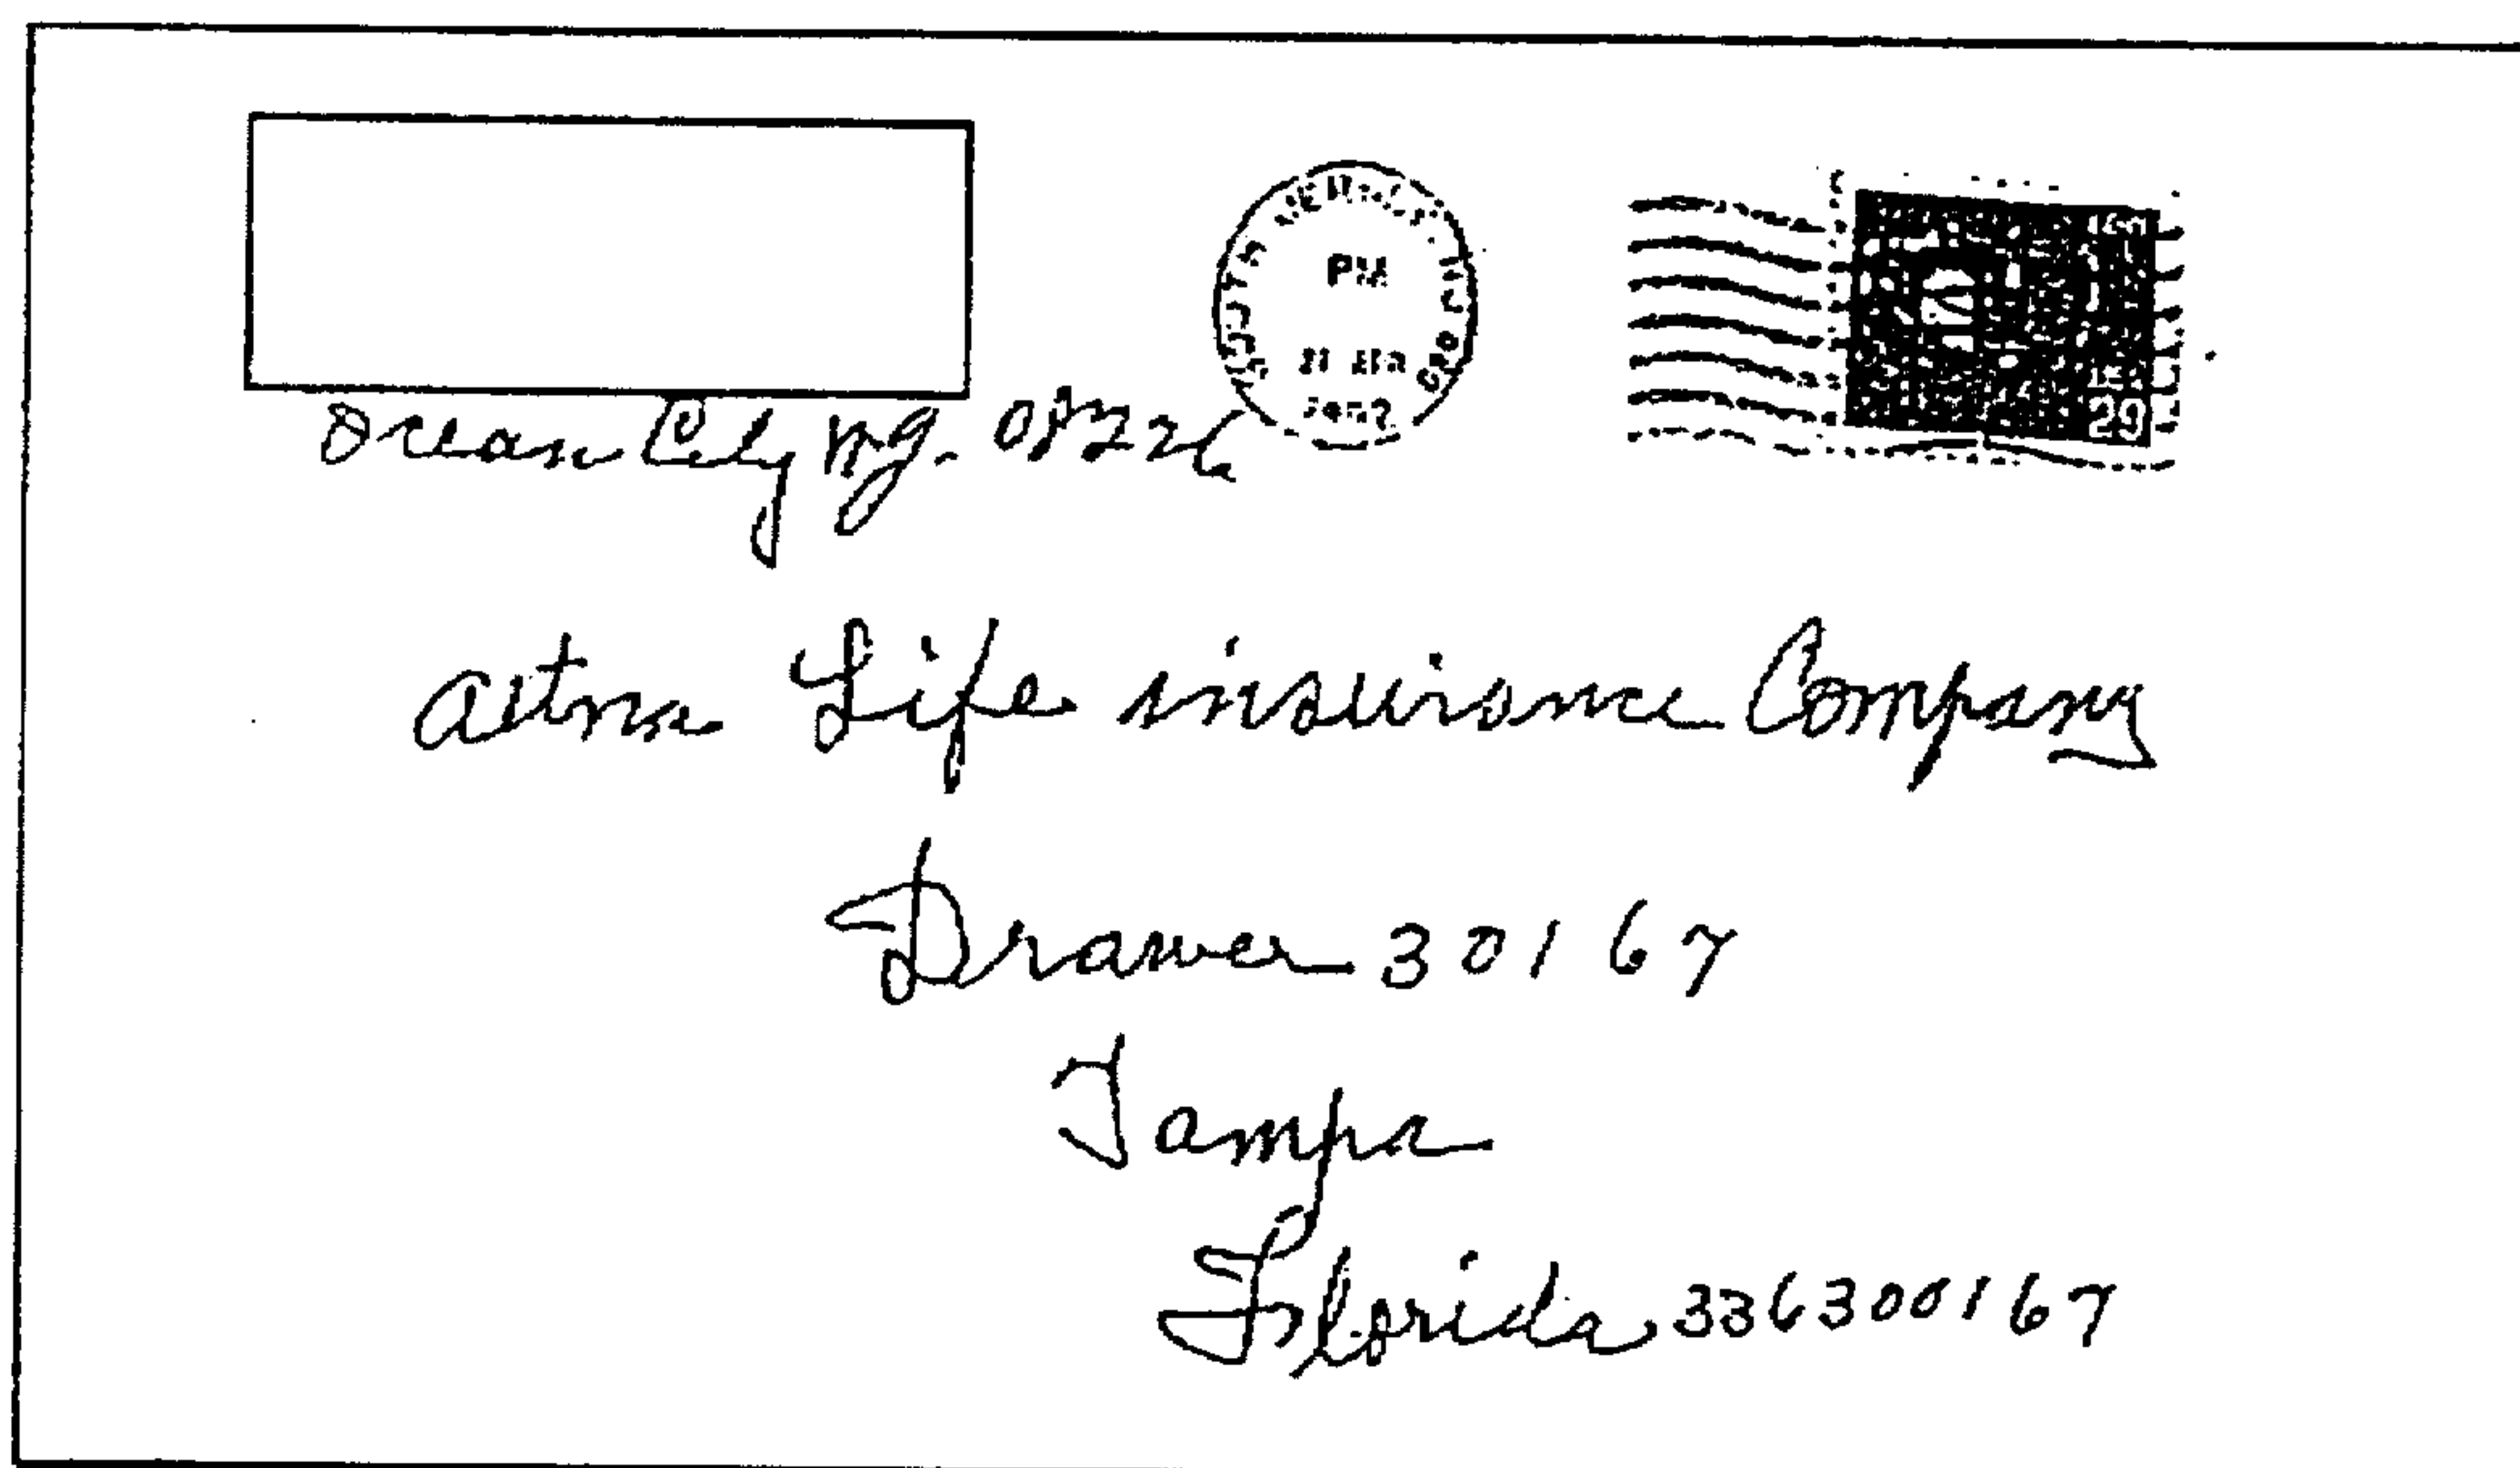 Ocean City NJ. 08226
PM
29
aetna Life insurance Company
Drawer 30167
Tampa
Florida 336300167